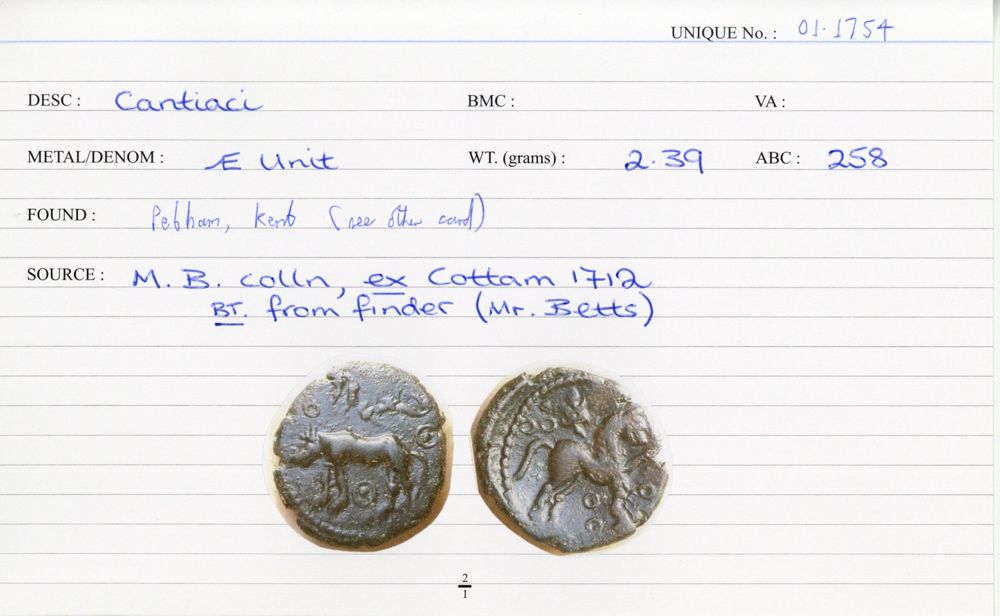 UNIQUE No. : 01.1754
DESC : Cantiaci BMC : VA :
METAL/DENOM : Æ Unit WT. (grams) : 2.39 ABC : 258
FOUND : Kent (see other card)
SOURCE : M. B. colln, ex Cottam 1712
BT. from finder (Mr. Betts)
2
1